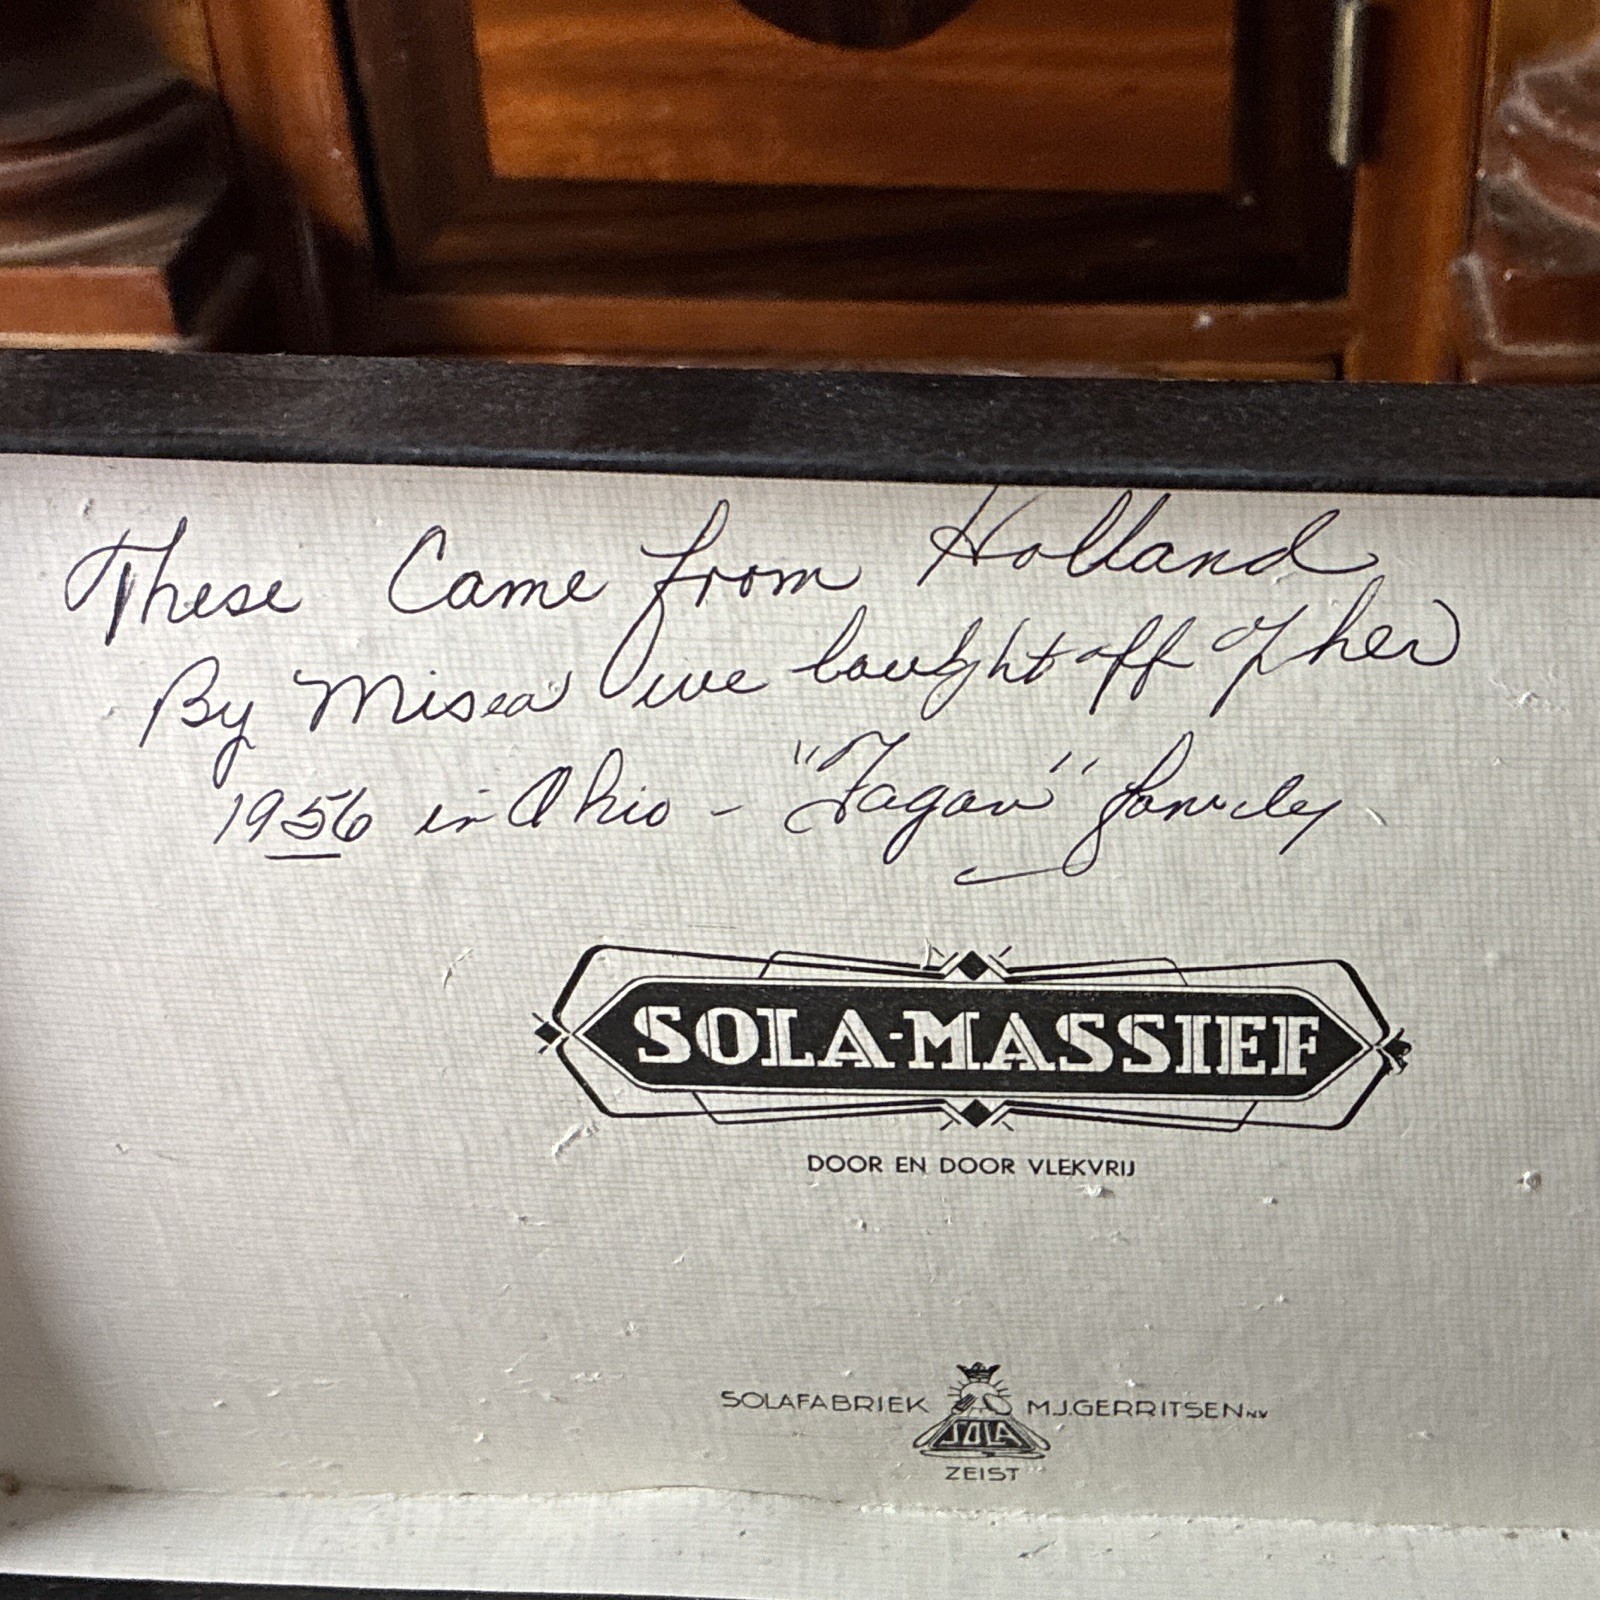 These Came from Holland
By Misea we bought off of her
1956 in Ohio - "Fagan" family
SOLA-MASSIEF
DOOR EN DOOR VLEKVRIJ
SOLAFABRIEK M.J.GERRITSEN NV
SOLA
ZEIST